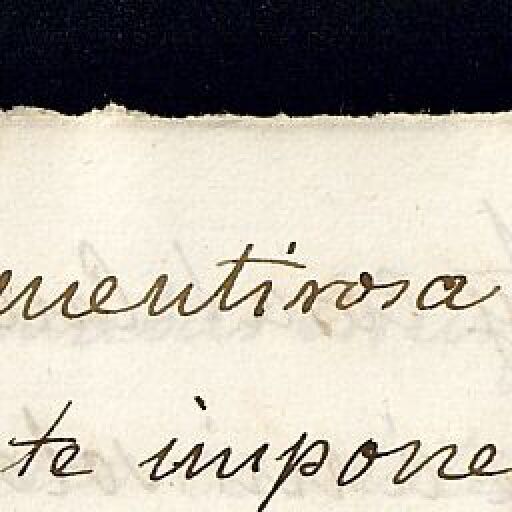 mentirosa
te impone